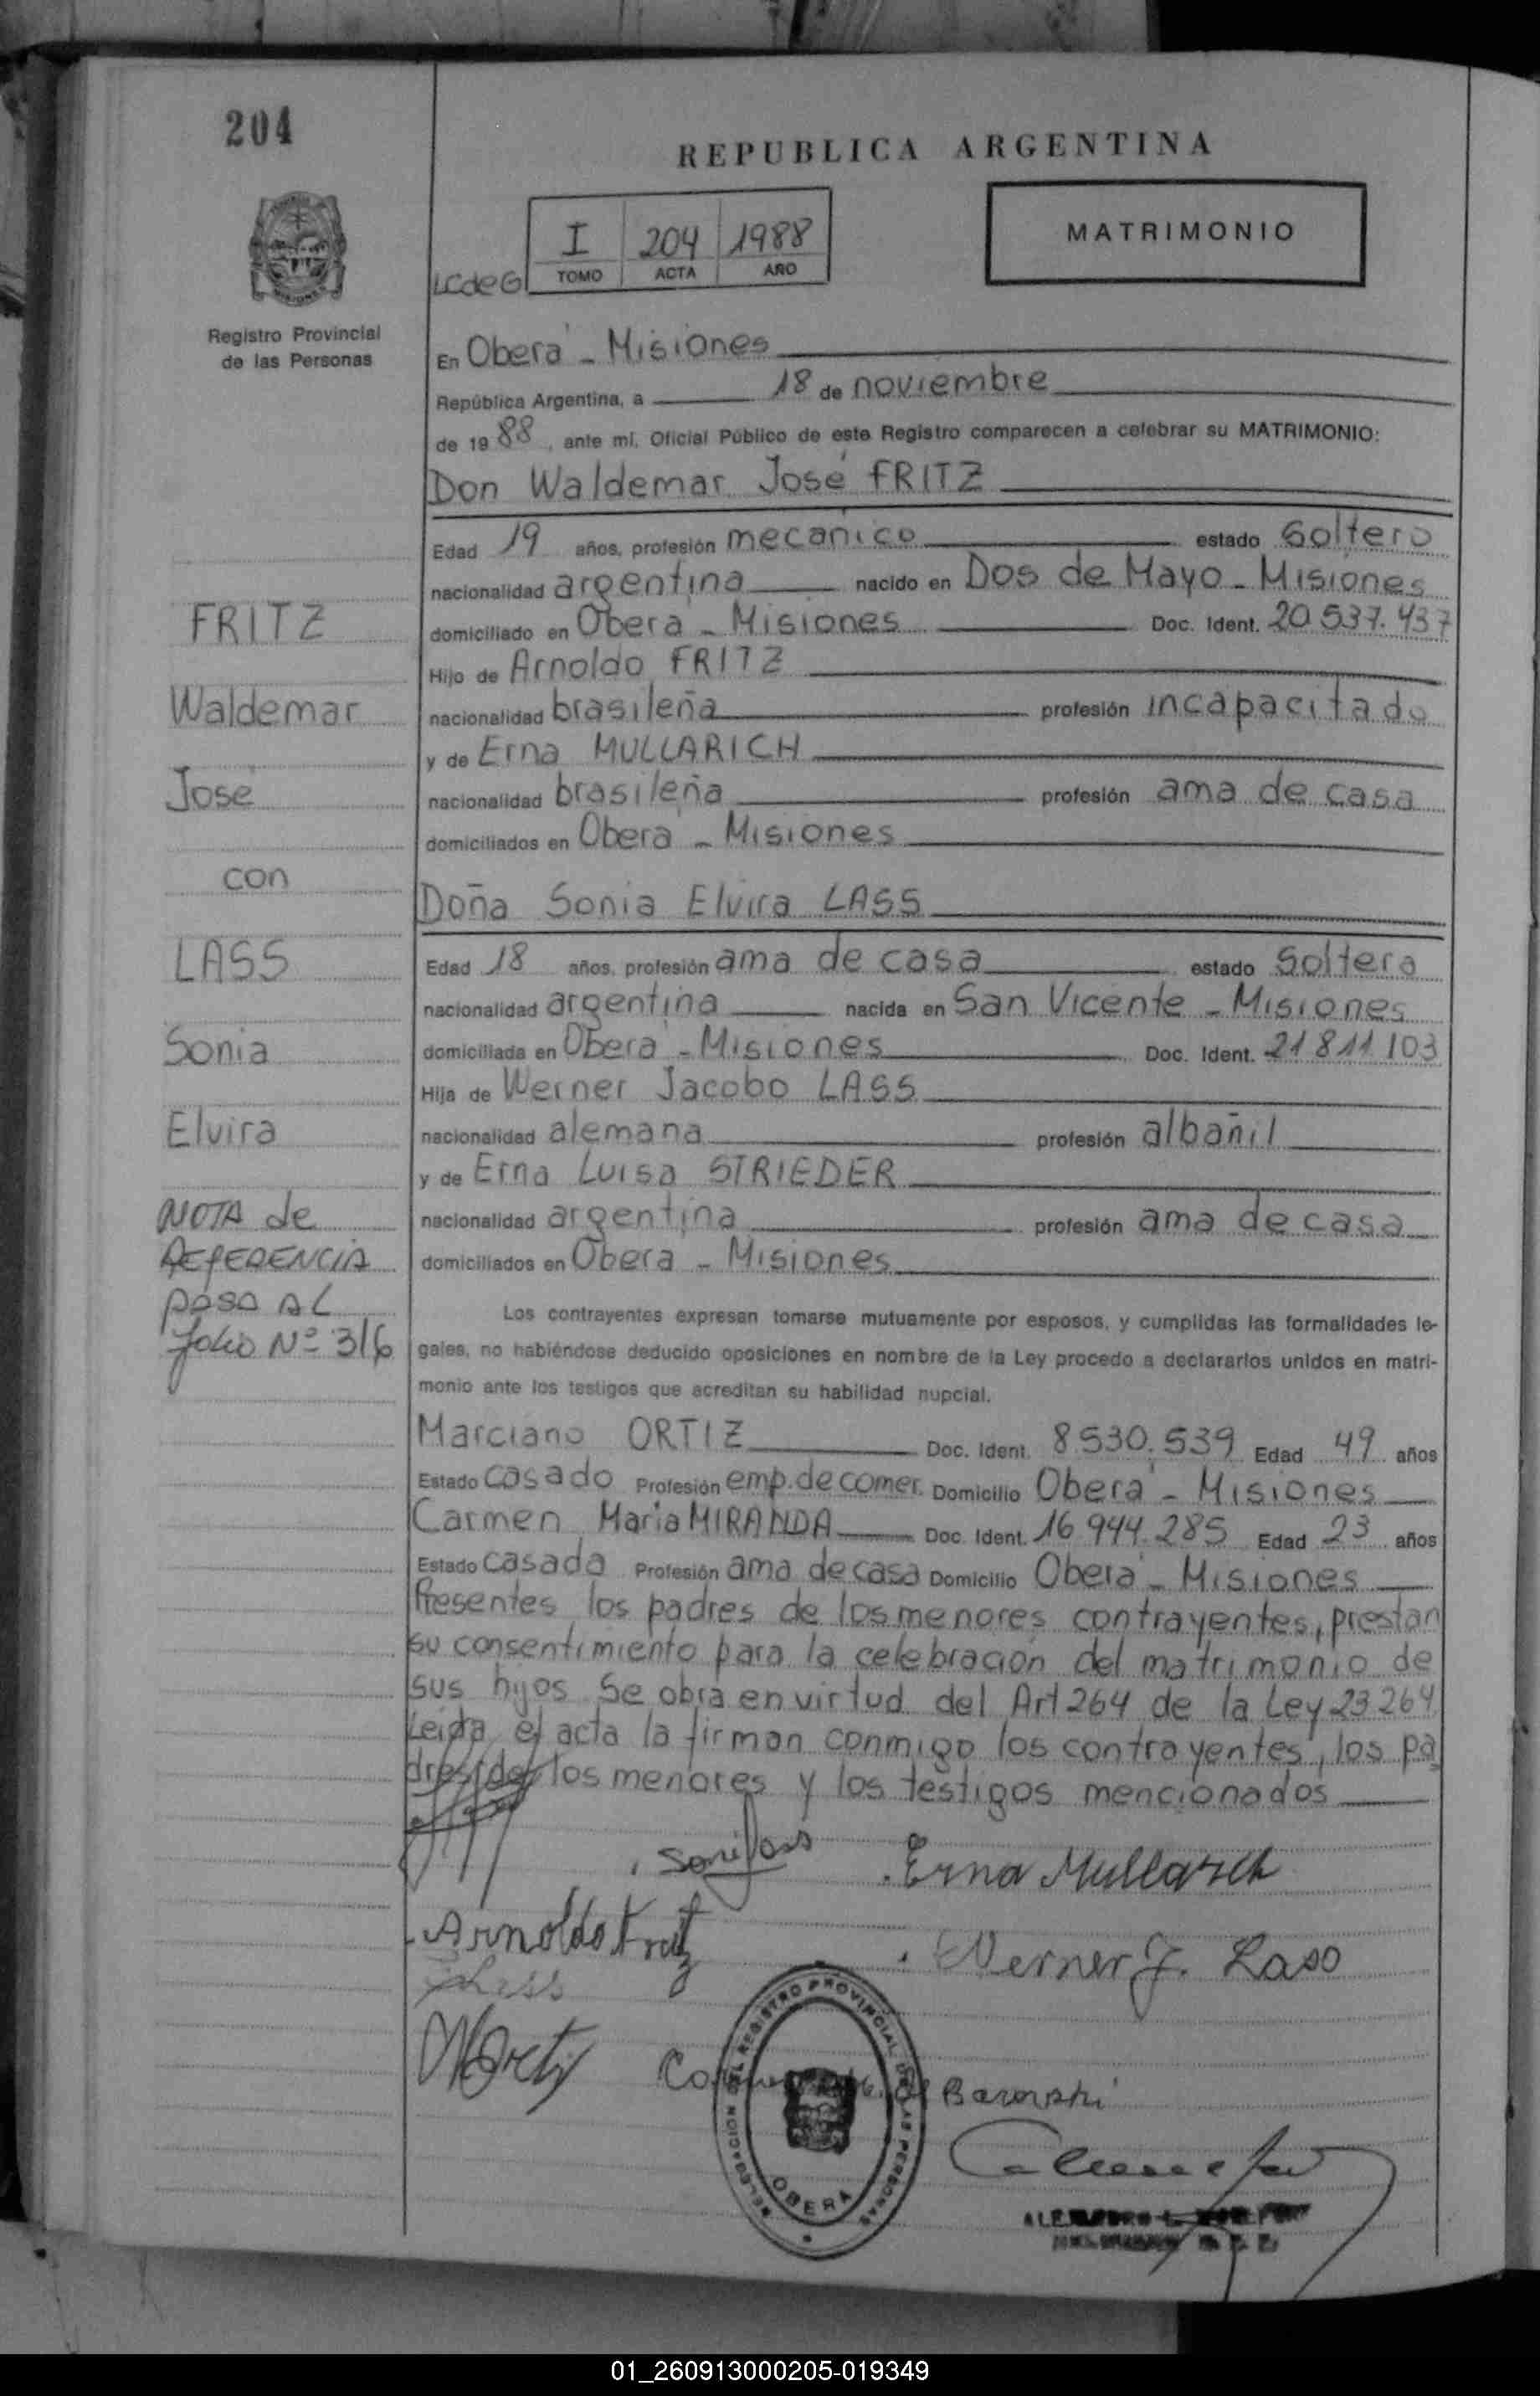 204
REPUBLICA ARGENTINA
MATRIMONIO
I 204 1988
TOMO ACTA AÑO
LCdeG
Registro Provincial
de las Personas
En Oberá - Misiones
República Argentina, a 18 de noviembre
de 1988, ante mí, Oficial Público de este Registro comparecen a celebrar su MATRIMONIO:
Don Waldemar José FRITZ
Edad 19 años, profesión mecánico estado soltero
nacionalidad argentina nacido en Dos de Mayo - Misiones
domiciliado en Oberá - Misiones Doc. Ident. 20.537.437
Hijo de Arnoldo FRITZ
nacionalidad brasileña profesión incapacitado
y de Erna MULLARICH
nacionalidad brasileña profesión ama de casa
domiciliados en Oberá - Misiones
Doña Sonia Elvira LASS
Edad 18 años, profesión ama de casa estado soltera
nacionalidad argentina nacida en San Vicente - Misiones
domiciliada en Oberá - Misiones Doc. Ident. 21 811 103
Hija de Werner Jacobo LASS
nacionalidad alemana profesión albañil
y de Erna Luisa STRIEDER
nacionalidad argentina profesión ama de casa
domiciliados en Oberá - Misiones
FRITZ
Waldemar
José
con
LASS
Sonia
Elvira
NOTA de
REFERENCIA
PASA AL
folio Nº 316
Los contrayentes expresan tomarse mutuamente por esposos, y cumplidas las formalidades le-
gales, no habiéndose deducido oposiciones en nombre de la Ley procedo a declararlos unidos en matri-
monio ante los testigos que acreditan su habilidad nupcial.
Marciano ORTIZ Doc. Ident. 8.530.539 Edad 49 años
Estado casado Profesión emp. de comer. Domicilio Oberá - Misiones
Carmen María MIRANDA Doc. Ident. 16.944.285 Edad 23 años
Estado casada Profesión ama de casa Domicilio Oberá - Misiones
Presentes los padres de los menores contrayentes, prestan
su consentimiento para la celebración del matrimonio de
sus hijos. Se obra en virtud del Art 264 de la Ley 23.264
Leida el acta la firman conmigo los contrayentes, los pa
dres de los menores y los testigos mencionados
Erna Mullarich
Arnoldo Fritz
Werner J. Lass
DELEGACION DEL REGISTRO PROVINCIAL DE LAS PERSONAS
OBERA
01_260913000205-019349